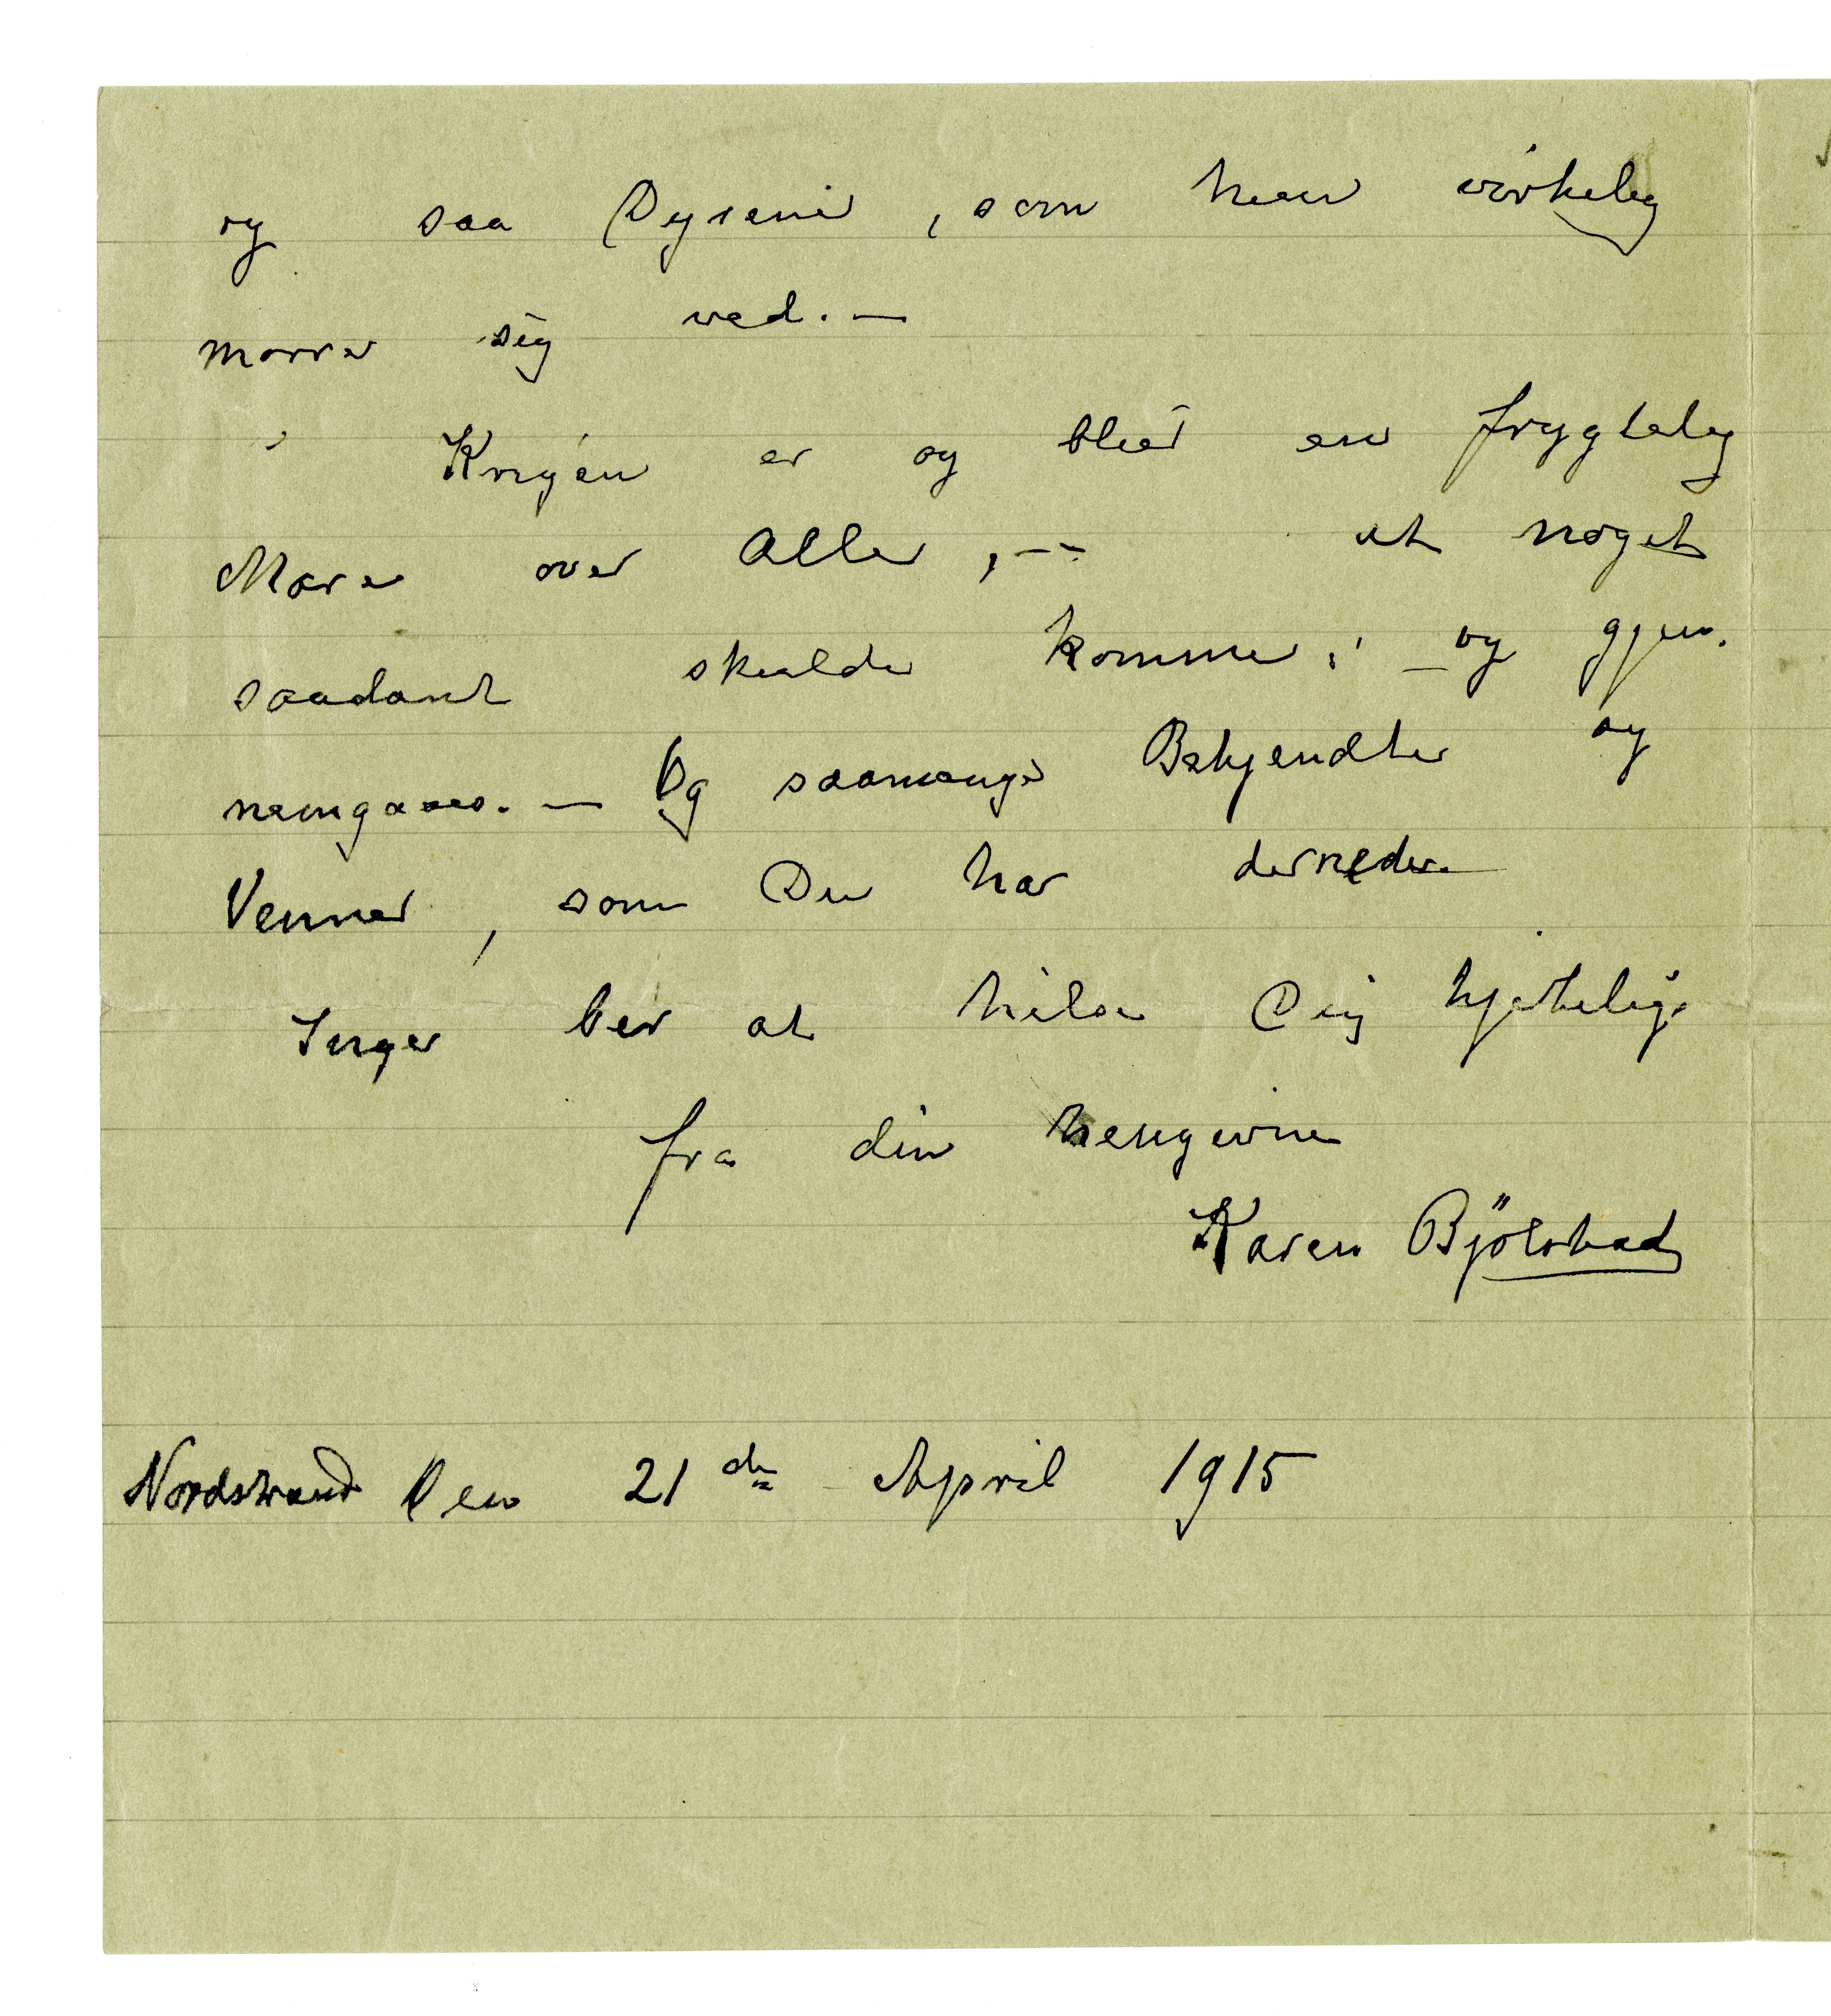 og saa Dyrene, som han virkelig
morrer sig ved. —
Krigen er og bliver en frygtelig
Mare over Alle, -- at noget
saadant skulde komme; – og gjen-
nemgaaes. — Og saamange Bekjendte og
Venner, som Du har dernede.
Inger ber at hilse Dig hjertelig.
fra din hengivne
Karen Bjölstad
Nordstrand Den 21de April 1915